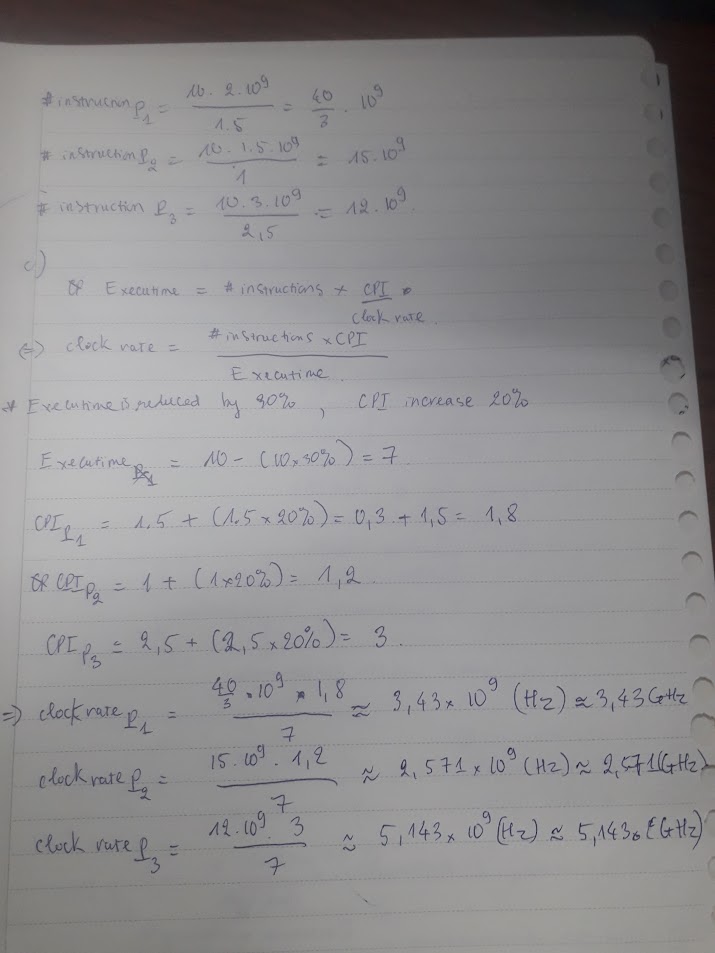 # instruction P1 = 10. 2. 10^9 / 1.5 = 40/3 . 10^9
# instruction P2 = 10. 1.5. 10^9 / 1 = 15. 10^9
# instruction P3 = 10. 3. 10^9 / 2,5 = 12. 10^9.
c)
Executime = # instructions x CPI / clock rate.
(=) clock rate = # instructions x CPI / Executime.
* Executime is reduced by 30%, CPI increase 20%
Executime = 10 - (10x30%) = 7.
CPI P1 = 1.5 + (1.5 x 20%) = 0,3 + 1,5 = 1,8
CPI P2 = 1 + (1x20%) = 1,2.
CPI P3 = 2,5 + (2,5 x 20%) = 3.
=) clock rate P1 = 40/3 . 10^9 x 1,8 / 7 ≈ 3,43 x 10^9 (Hz) ≈ 3,43 GHz
clock rate P2 = 15. 10^9 . 1,2 / 7 ≈ 2,571 x 10^9 (Hz) ≈ 2,571 (GHz)
clock rate P3 = 12. 10^9. 3 / 7 ≈ 5,143 x 10^9 (Hz) ≈ 5,143 (GHz)